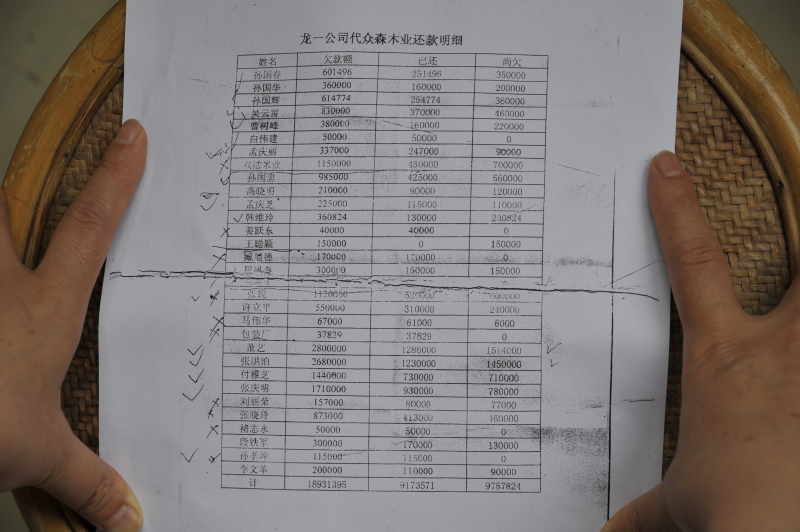 龙一公司代众森木业还款明细
姓名 欠款额 已还 尚欠
孙国春 601496 251496 350000
孙国华 360000 160000 200000
孙国辉 614774 254774 360000
830000 370000 460000
曹树峰 380000 160000 220000
白伟建 50000 50000 0
孟庆丽 337000 247000 90000
双洁木业 1150000 450000 700000
孙国忠 985000 425000 560000
高晓明 210000 90000 120000
孟庆芝 225000 115000 110000
韩维玲 360824 130000 230824
姜跃东 40000 40000 0
王聪颖 150000 0 150000
戴恩德 170000 170000 0
300000 150000 150000
1120000 520000 600000
许立平 550000 310000 240000
马伟华 67000 61000 6000
包装厂 37829 37829 0
董艺 2800000 1286000 1514000
张洪泊 2680000 1230000 1450000
付雅芝 1440000 730000 710000
张庆明 1710000 930000 780000
刘丽荣 157000 80000 77000
张晓玲 873000 413000 460000
褚志永 50000 50000 0
段铁军 300000 170000 130000
孙孝坤 115000 115000 0
李文革 200000 110000 90000
计 18931395 9173571 9757824